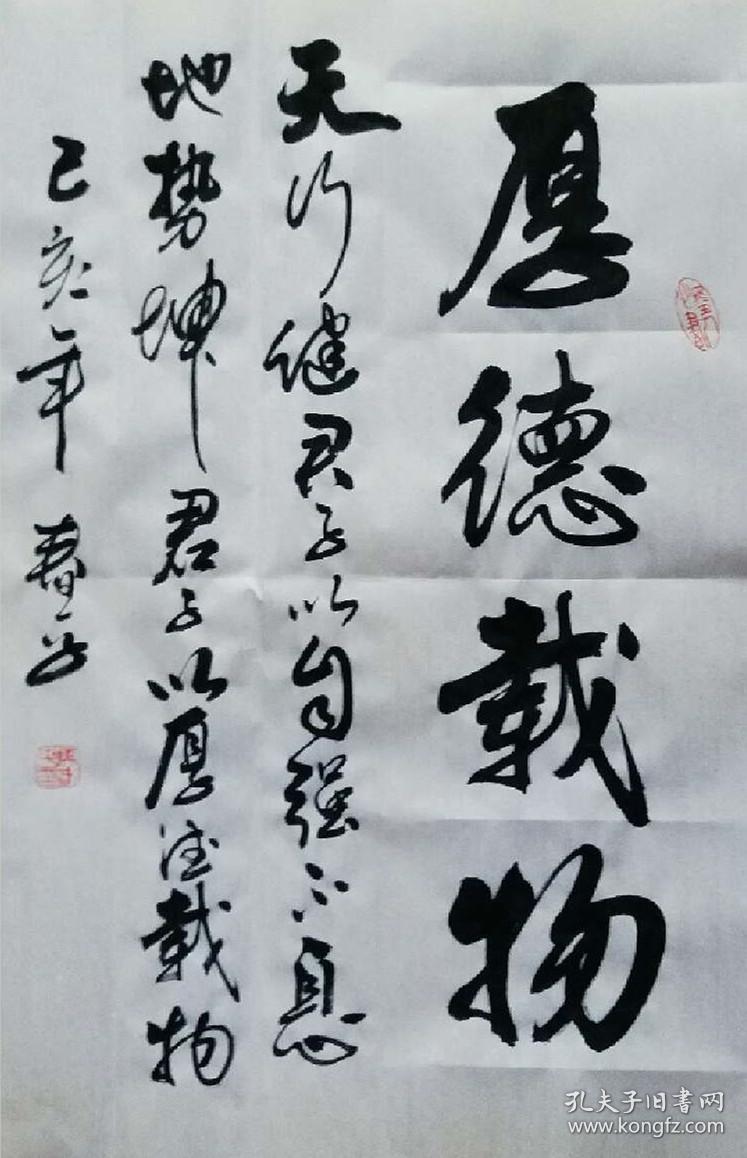 厚德载物
天行健君子以自强不息
地势坤君子以厚德载物
己亥年 春平
孔夫子旧书网
www.kongfz.com